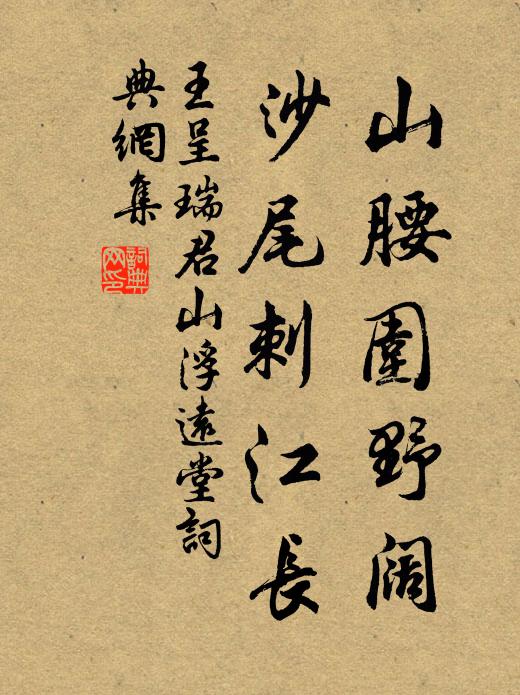 山腰圍野阔
沙尾刺江長
王呈瑞君山浮遠堂詞
典網集
詞典
网印